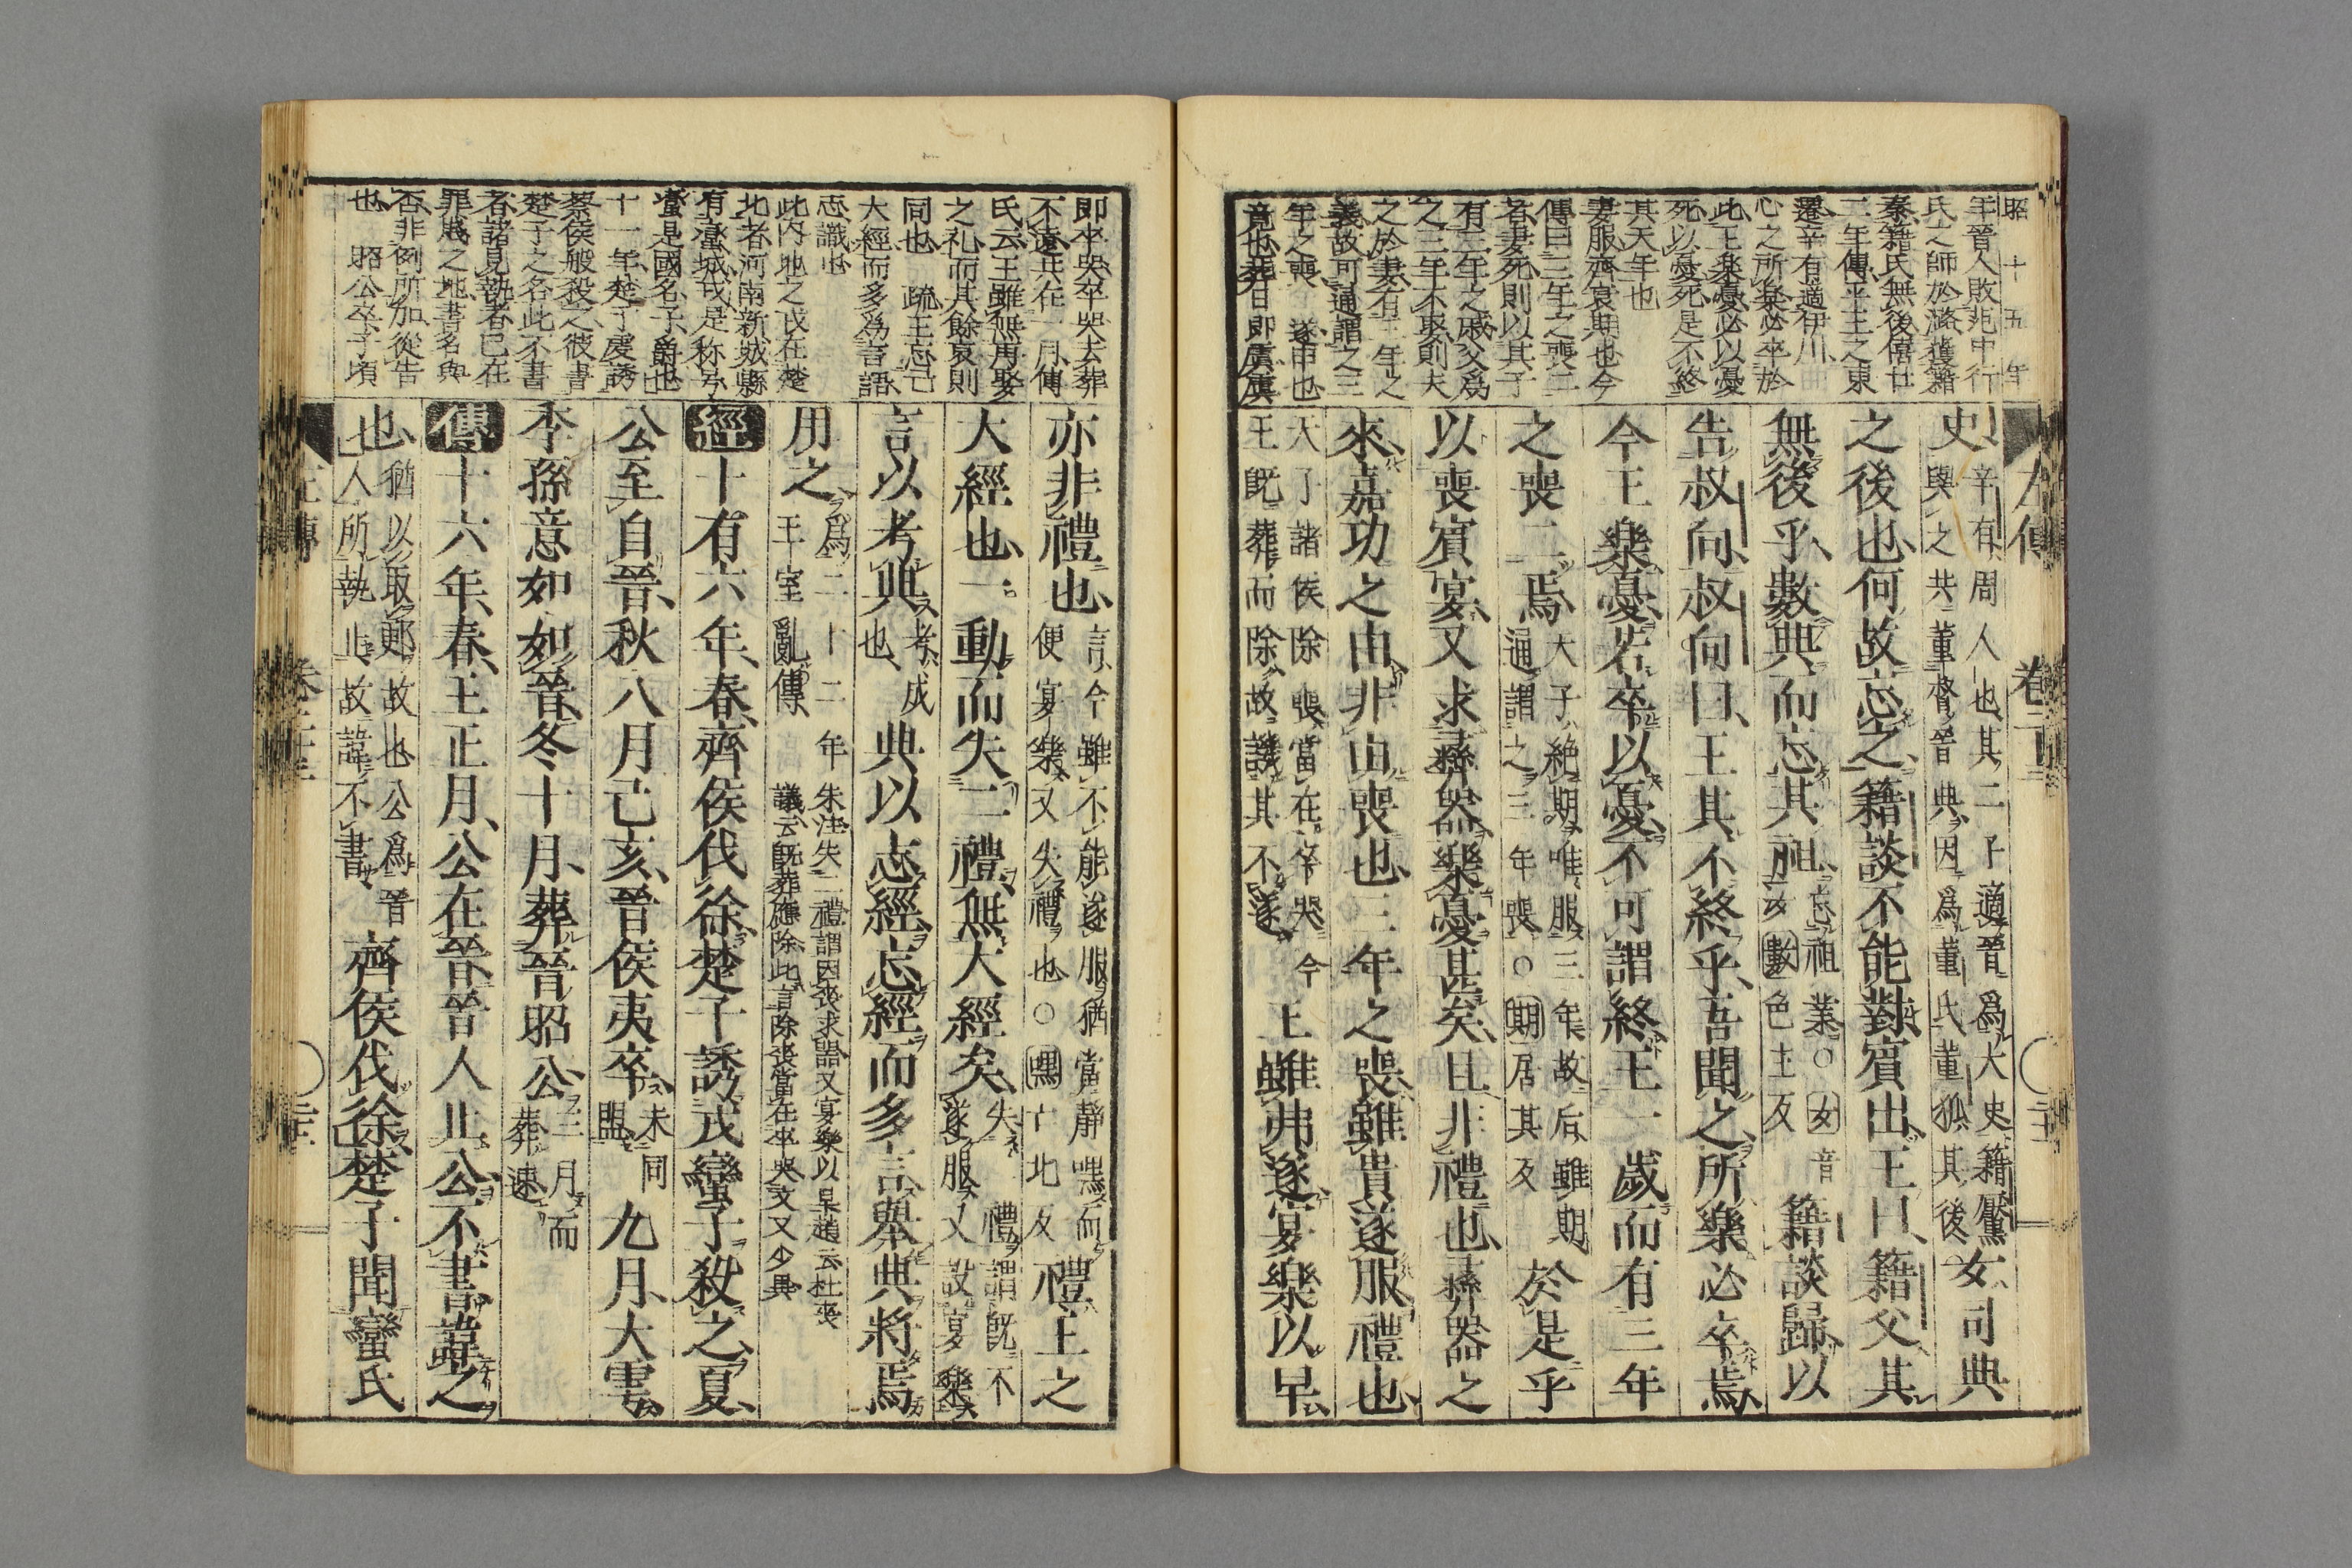 昭十五年
年晉人敗范中行
氏之師於潞獲籍
秦籍氏無後僖廿
二年傳平王之東
遷辛有適伊川
心之所樂必卒於
此王樂憂必以憂
死以憂死是不終
其天年也
妻服齊衰期也今
傳曰三年之喪二
者妻死則以其子
有三年之戚父爲
之三年不娶則夫
之於妻有三年之
義故可通謂之三
年之喪 遂申也
竟也葬日即虞虞
左傳 卷二十三
史辛有周人也其二子適晉爲大史籍黶
與之共董督晉典因爲董氏董狐其後女司典
之後也何故忘之籍談不能對賓出王曰籍父其
無後乎數典而忘其祖忘祖業○女音
汝數色主反籍談歸以
告叔向叔向曰王其不終乎吾聞之所樂必卒焉
今王樂憂若卒以憂不可謂終王一歲而有三年
之喪二焉天子絶期唯服三年故后雖期
通謂之三年喪○期居其反於是乎
以喪賓宴又求彝器樂憂甚矣且非禮也彝器之
來嘉功之由非由喪也三年之喪雖貴遂服禮也
天子諸侯除喪當在卒哭今
王既葬而除故譏其不遂王雖弗遂宴樂以早
即卒哭卒哭去葬
不遠共在一月傳
氏云王雖無再娶
之礼而其餘哀則
同也 疏王忘己
大經而多爲言語
志識也
此内地之戎在楚
北者河南新城縣
有蠻城戎是称号
蠻是國名子爵也
十一年楚子虔誘
蔡侯般殺之彼書
楚子之名此不書
者諸見執者已在
罪賤之地書名與
否非例所加從告
也 昭公卒子頃
亦非禮也言今雖不能遂服猶當靜嘿而
便宴樂又失禮也○嘿亡北反禮王之
大經也一動而失二禮無大經矣失二禮謂既不
遂服又設宴樂
言以考典考成
也典以志經忘經而多言舉典將焉
用之爲二十二年
王室亂傳朱注失二禮謂因喪求器又宴樂以早趙云杜喪
議云既葬應除此言除喪當在卒哭文又少異
經十有六年春齊侯伐徐楚子誘戎蠻子殺之夏
公至自晉秋八月己亥晉侯夷卒未同
盟九月大雩
季孫意如如晉冬十月葬晉昭公三月而
葬速
傳十六年春王正月公在晉晉人止公不書諱之
也猶以取郠故也公爲晉
人所執止故諱不書齊侯伐徐楚子聞蠻氏